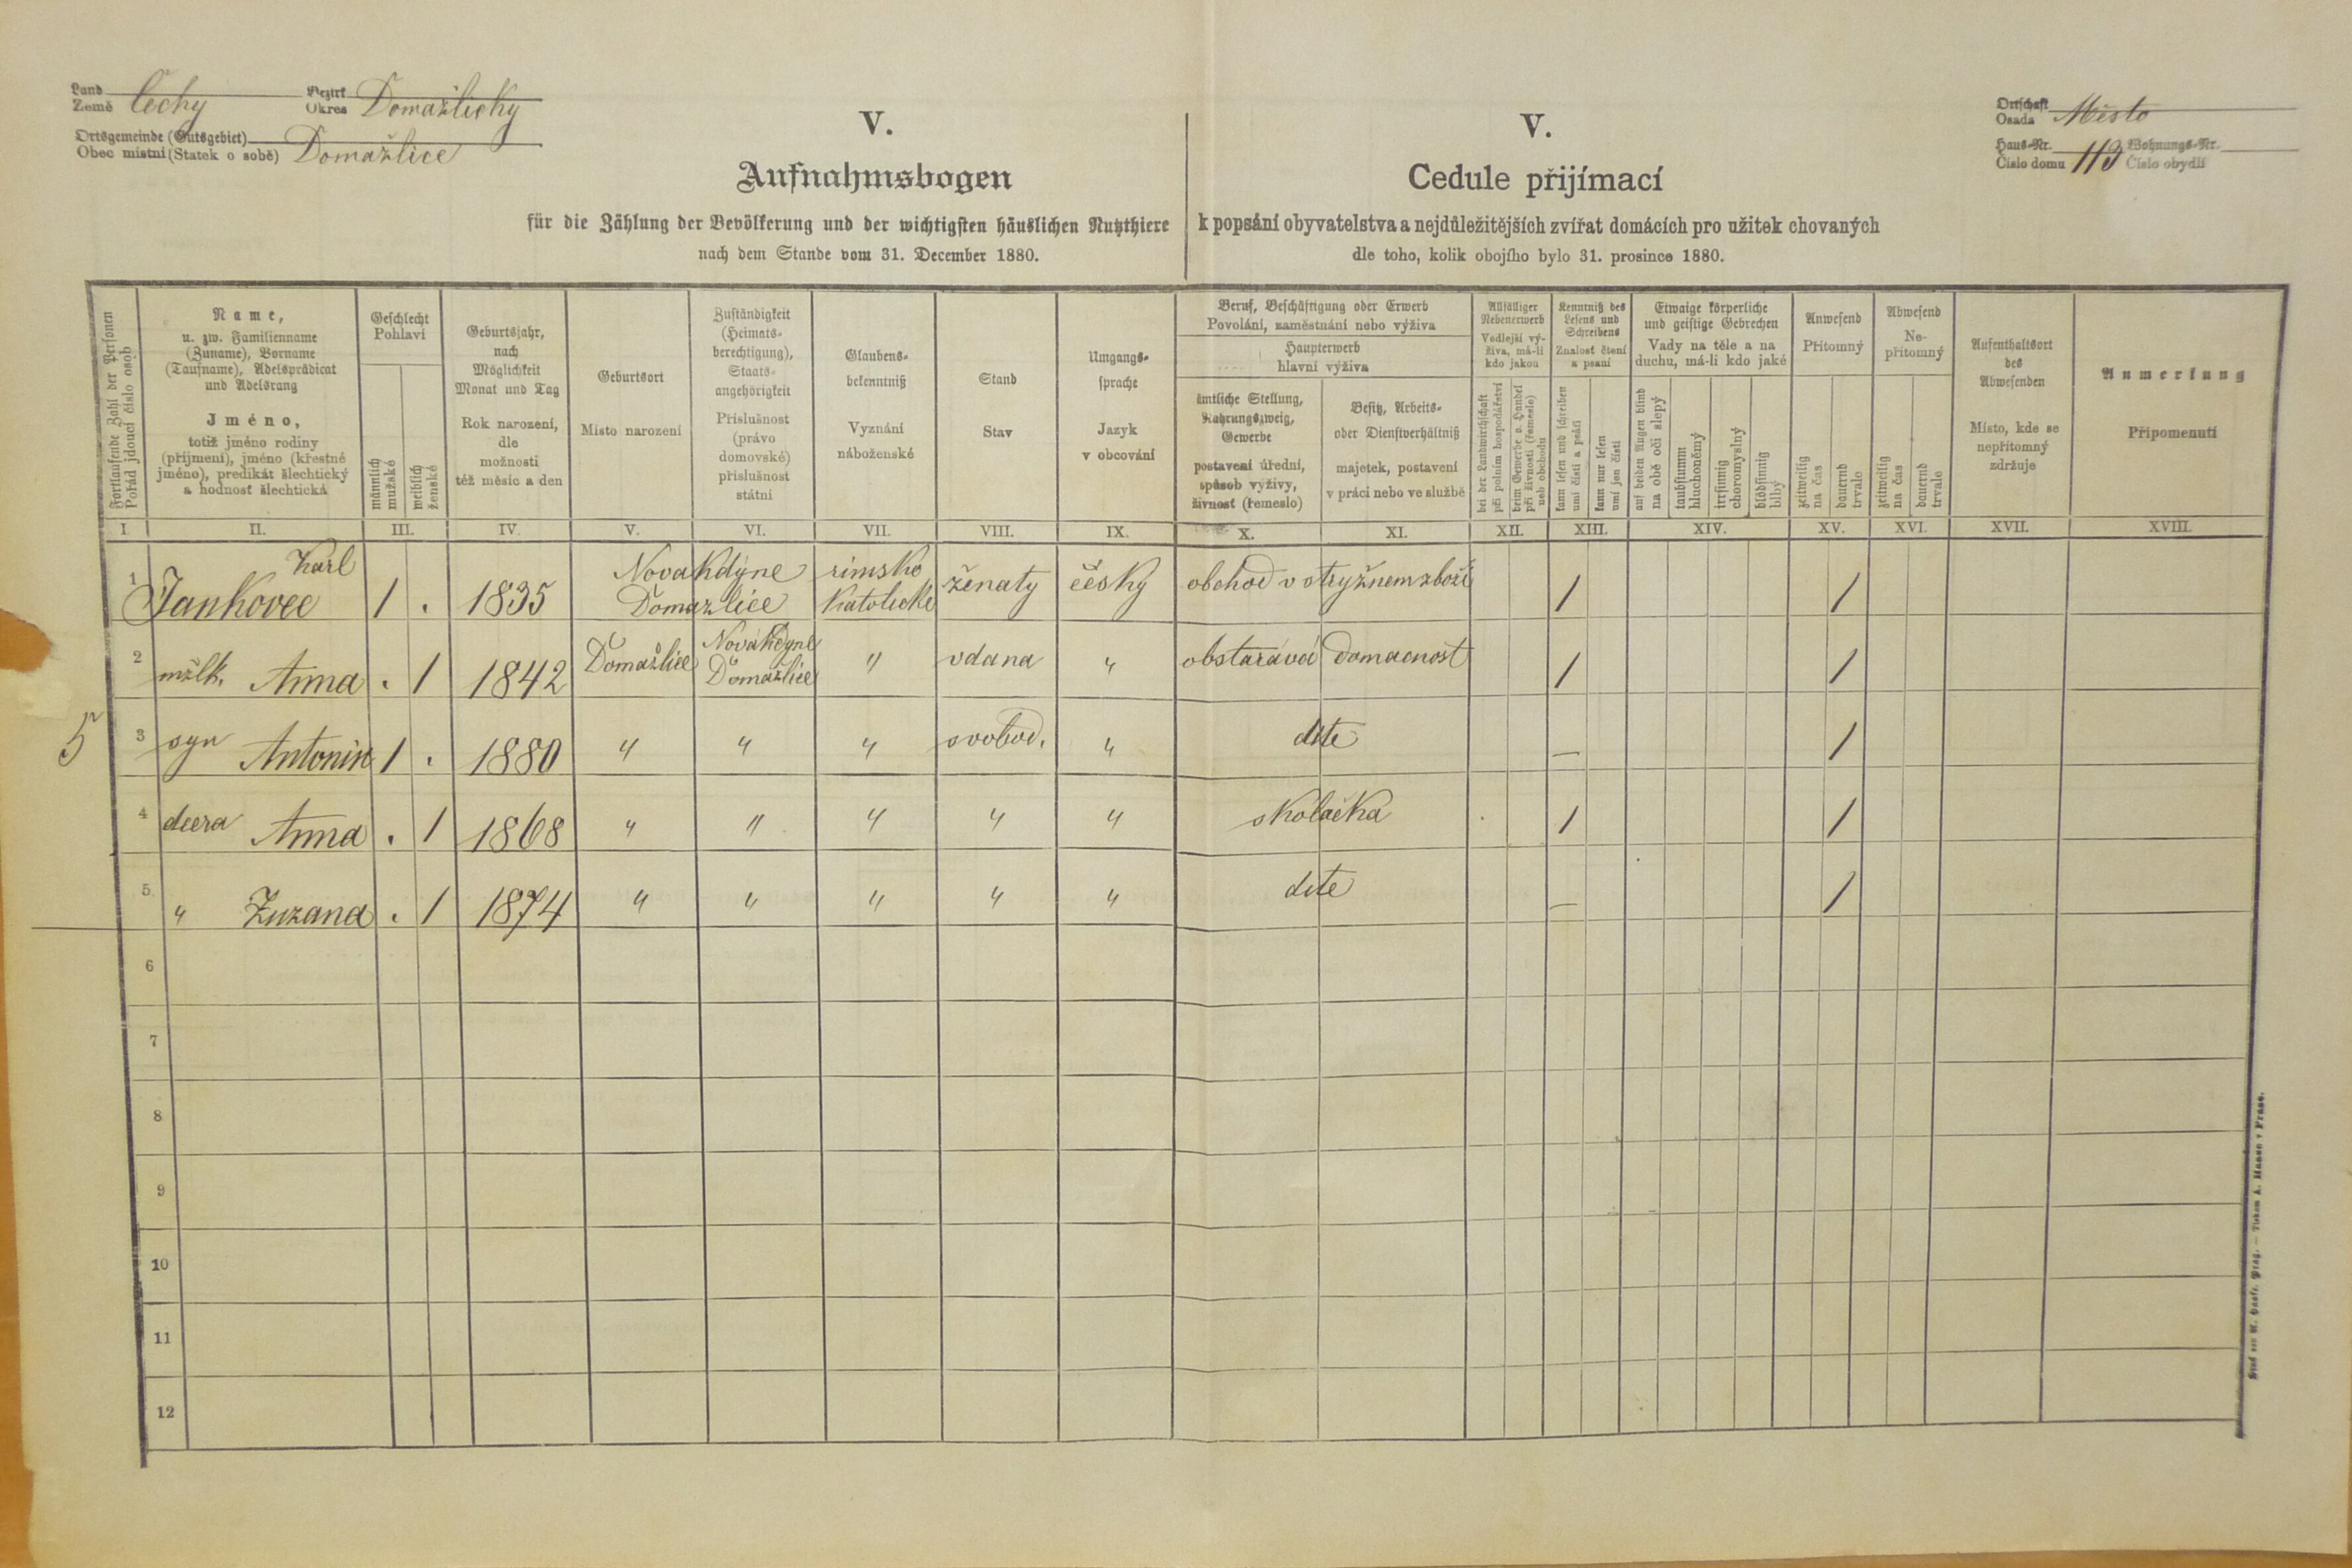 Land
Země Čechy
Bezirk
Okres Domažlický
Ortsgemeinde (Gutsgebiet)
Obec místní (Statek o sobě) Domažlice
V.
Aufnahmsbogen
für die Zählung der Bevölkerung und der wichtigsten häuslichen Nutzthiere
nach dem Stande vom 31. December 1880.
V.
Cedule přijímací
k popsání obyvatelstva a nejdůležitějších zvířat domácích pro užitek chovaných
dle toho, kolik obojího bylo 31. prosince 1880.
Ortschaft
Osada Město
Haus-Nr.
Číslo domu 113
Wohnungs-Nr.
Číslo obydlí
Fortlaufende Zahl der Personen
Pořád jdoucí číslo osob
Name,
u. zw. Familienname
(Zuname), Vorname
(Taufname), Adelsprädicat
und Adelsrang
Jméno,
totiž jméno rodiny
(příjmení), jméno (křestné
jméno), predikát šlechtický
a hodnosť šlechtická
Geschlecht
Pohlaví
männlich
mužské
weiblich
ženské
Geburtsjahr,
nach
Möglichkeit
Monat und Tag
Rok narození,
dle
možnosti
též měsíc a den
Geburtsort
Místo narození
Zuständigkeit
(Heimats-
berechtigung),
Staats-
angehörigkeit
Příslušnost
(právo
domovské)
příslušnost
státní
Glaubens-
bekenntniß
Vyznání
náboženské
Stand
Stav
Umgangs-
sprache
Jazyk
v obcování
Beruf, Beschäftigung oder Erwerb
Povolání, zaměstnání nebo výživa
Haupterwerb
hlavní výživa
ämtliche Stellung,
Nahrungszweig,
Gewerbe
postavení úřední,
spůsob výživy,
živnosť (řemeslo)
Besitz, Arbeits-
oder Dienstverhältniß
majetek, postavení
v práci nebo ve službě
Allfälliger
Nebenerwerb
Vedlejší vý-
živa, má-li
kdo jakou
bei der Landwirthschaft
při polním hospodářství
beim Gewerbe o. Handel
při živnosti (řemesle)
neb obchodu
Kenntniß des
Lesens und
Schreibens
Znalosť čtení
a psaní
kann lesen und schreiben
umí čísti a psáti
kann nur lesen
umí jen čísti
Etwaige körperliche
und geistige Gebrechen
Vady na těle a na
duchu, má-li kdo jaké
auf beiden Augen blind
na obě oči slepý
taubstumm
hluchoněmý
irrsinnig
choromyslný
blödsinnig
blbý
Anwesend
Přítomný
zeitweilig
na čas
dauernd
trvale
Abwesend
Ne-
přítomný
zeitweilig
na čas
dauernd
trvale
Aufenthaltsort
des
Abwesenden
Místo, kde se
nepřítomný
zdržuje
Anmerkung
Připomenutí
I. II. III. IV. V. VI. VII. VIII. IX. X. XI. XII. XIII. XIV. XV. XVI. XVII. XVIII.
Karl Nova Kdýne rimsko
1 Jankovec 1 . 1835 Domazlice Katolické ženaty česky obchod v stryžnem zboží / /
Nova Kdyne
2 mžlk. Anna . 1 1842 Domažlice Domažlice " vdana " obstarává domacnost / /
5
3 syn Antonin 1 . 1880 " " " svobod. " díte — /
4 dcera Anna . 1 1868 " " " " " skolačka / /
5 " Zuzana . 1 1874 " " " " " díte — /
6
7
8
9
10
11
12